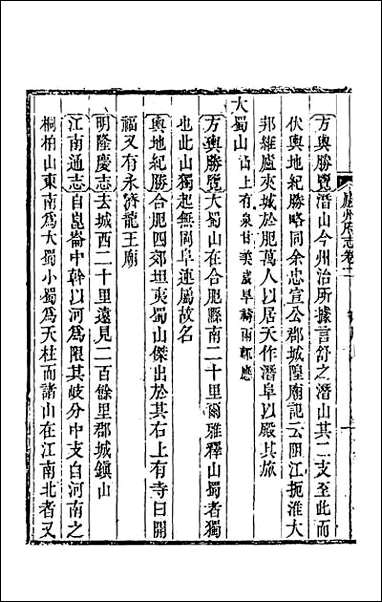 方輿勝覽潛山今州治所據言舒之潛山其一支至此而
伏輿地紀勝略同余忠宣公郡城隍廟記云阻江扼淮大
邦維廬夾城於肥萬人以居天作潛阜以殿其旅
大蜀山山上有泉甘美歲旱禱雨輒應
方輿勝覽大蜀山在合肥縣南二十里爾雅釋山蜀者獨
也此山獨起無岡阜連屬故名
輿地紀勝合肥四郊坦夷蜀山傑出於其右上有寺曰開
福又有永濟龍王廟
明隆慶志去城西二十里遠見二百餘里郡城鎮山
江南通志自崑崙中幹以河為限其岐分中支自河南之
桐柏山東南為大蜀小蜀為天柱而諸山在江南北者又
廬州府志卷二